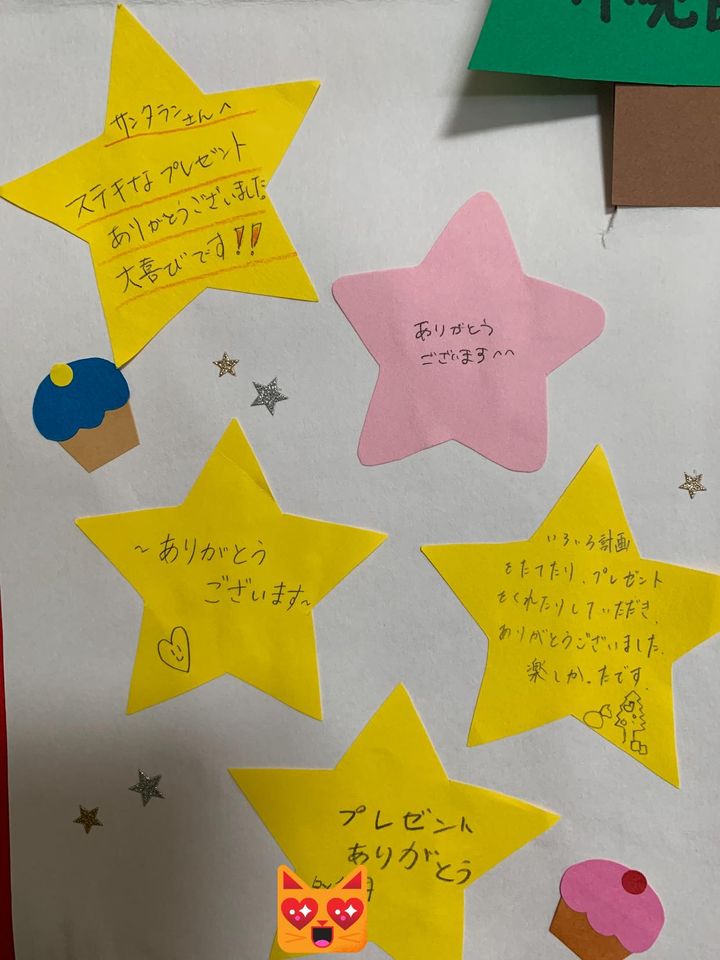 サンタランさんへ
ステキなプレゼント
ありがとうございました
大喜びです!!
ありがとう
ございます^^
~ありがとう
ございます~
いろいろ計画
をたてたり、プレゼント
をくれたりしていただき、
ありがとうございました。
楽しかったです。
プレゼント
ありがとう